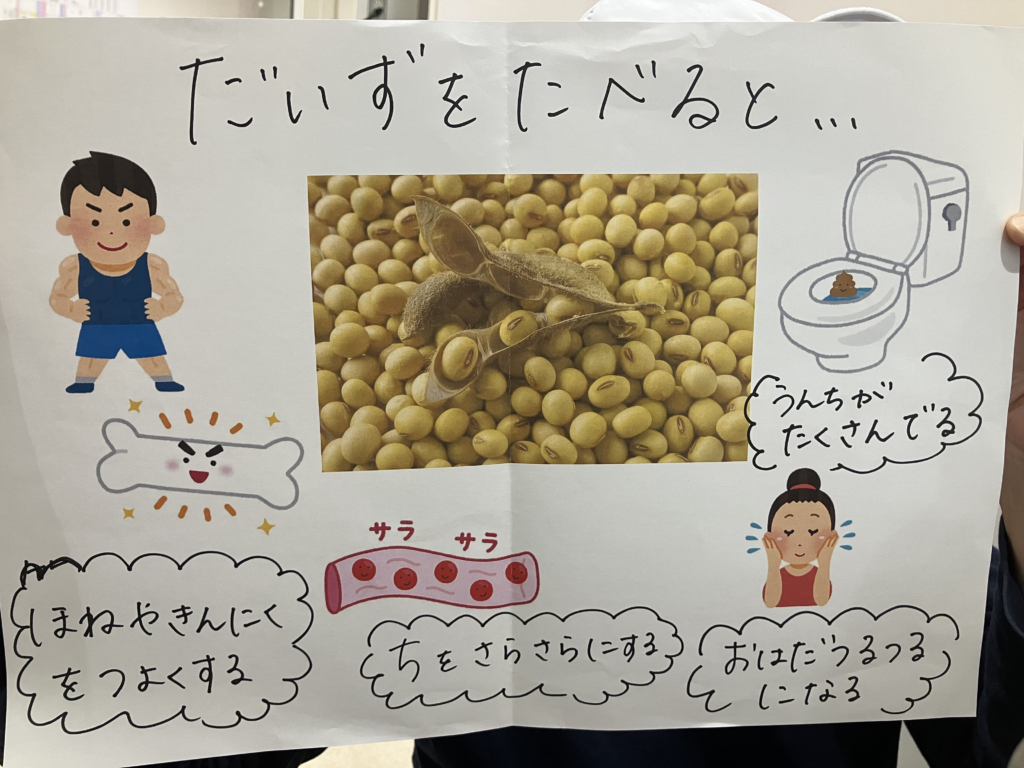 だいずをたべると...
うんちが
たくさんでる
サラ サラ
ほねやきんにく
をつよくする
ちをさらさらにする
おはだつるつる
になる